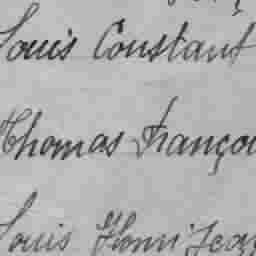 Louis Constant
Thomas Françoi
Louis Henri Jean